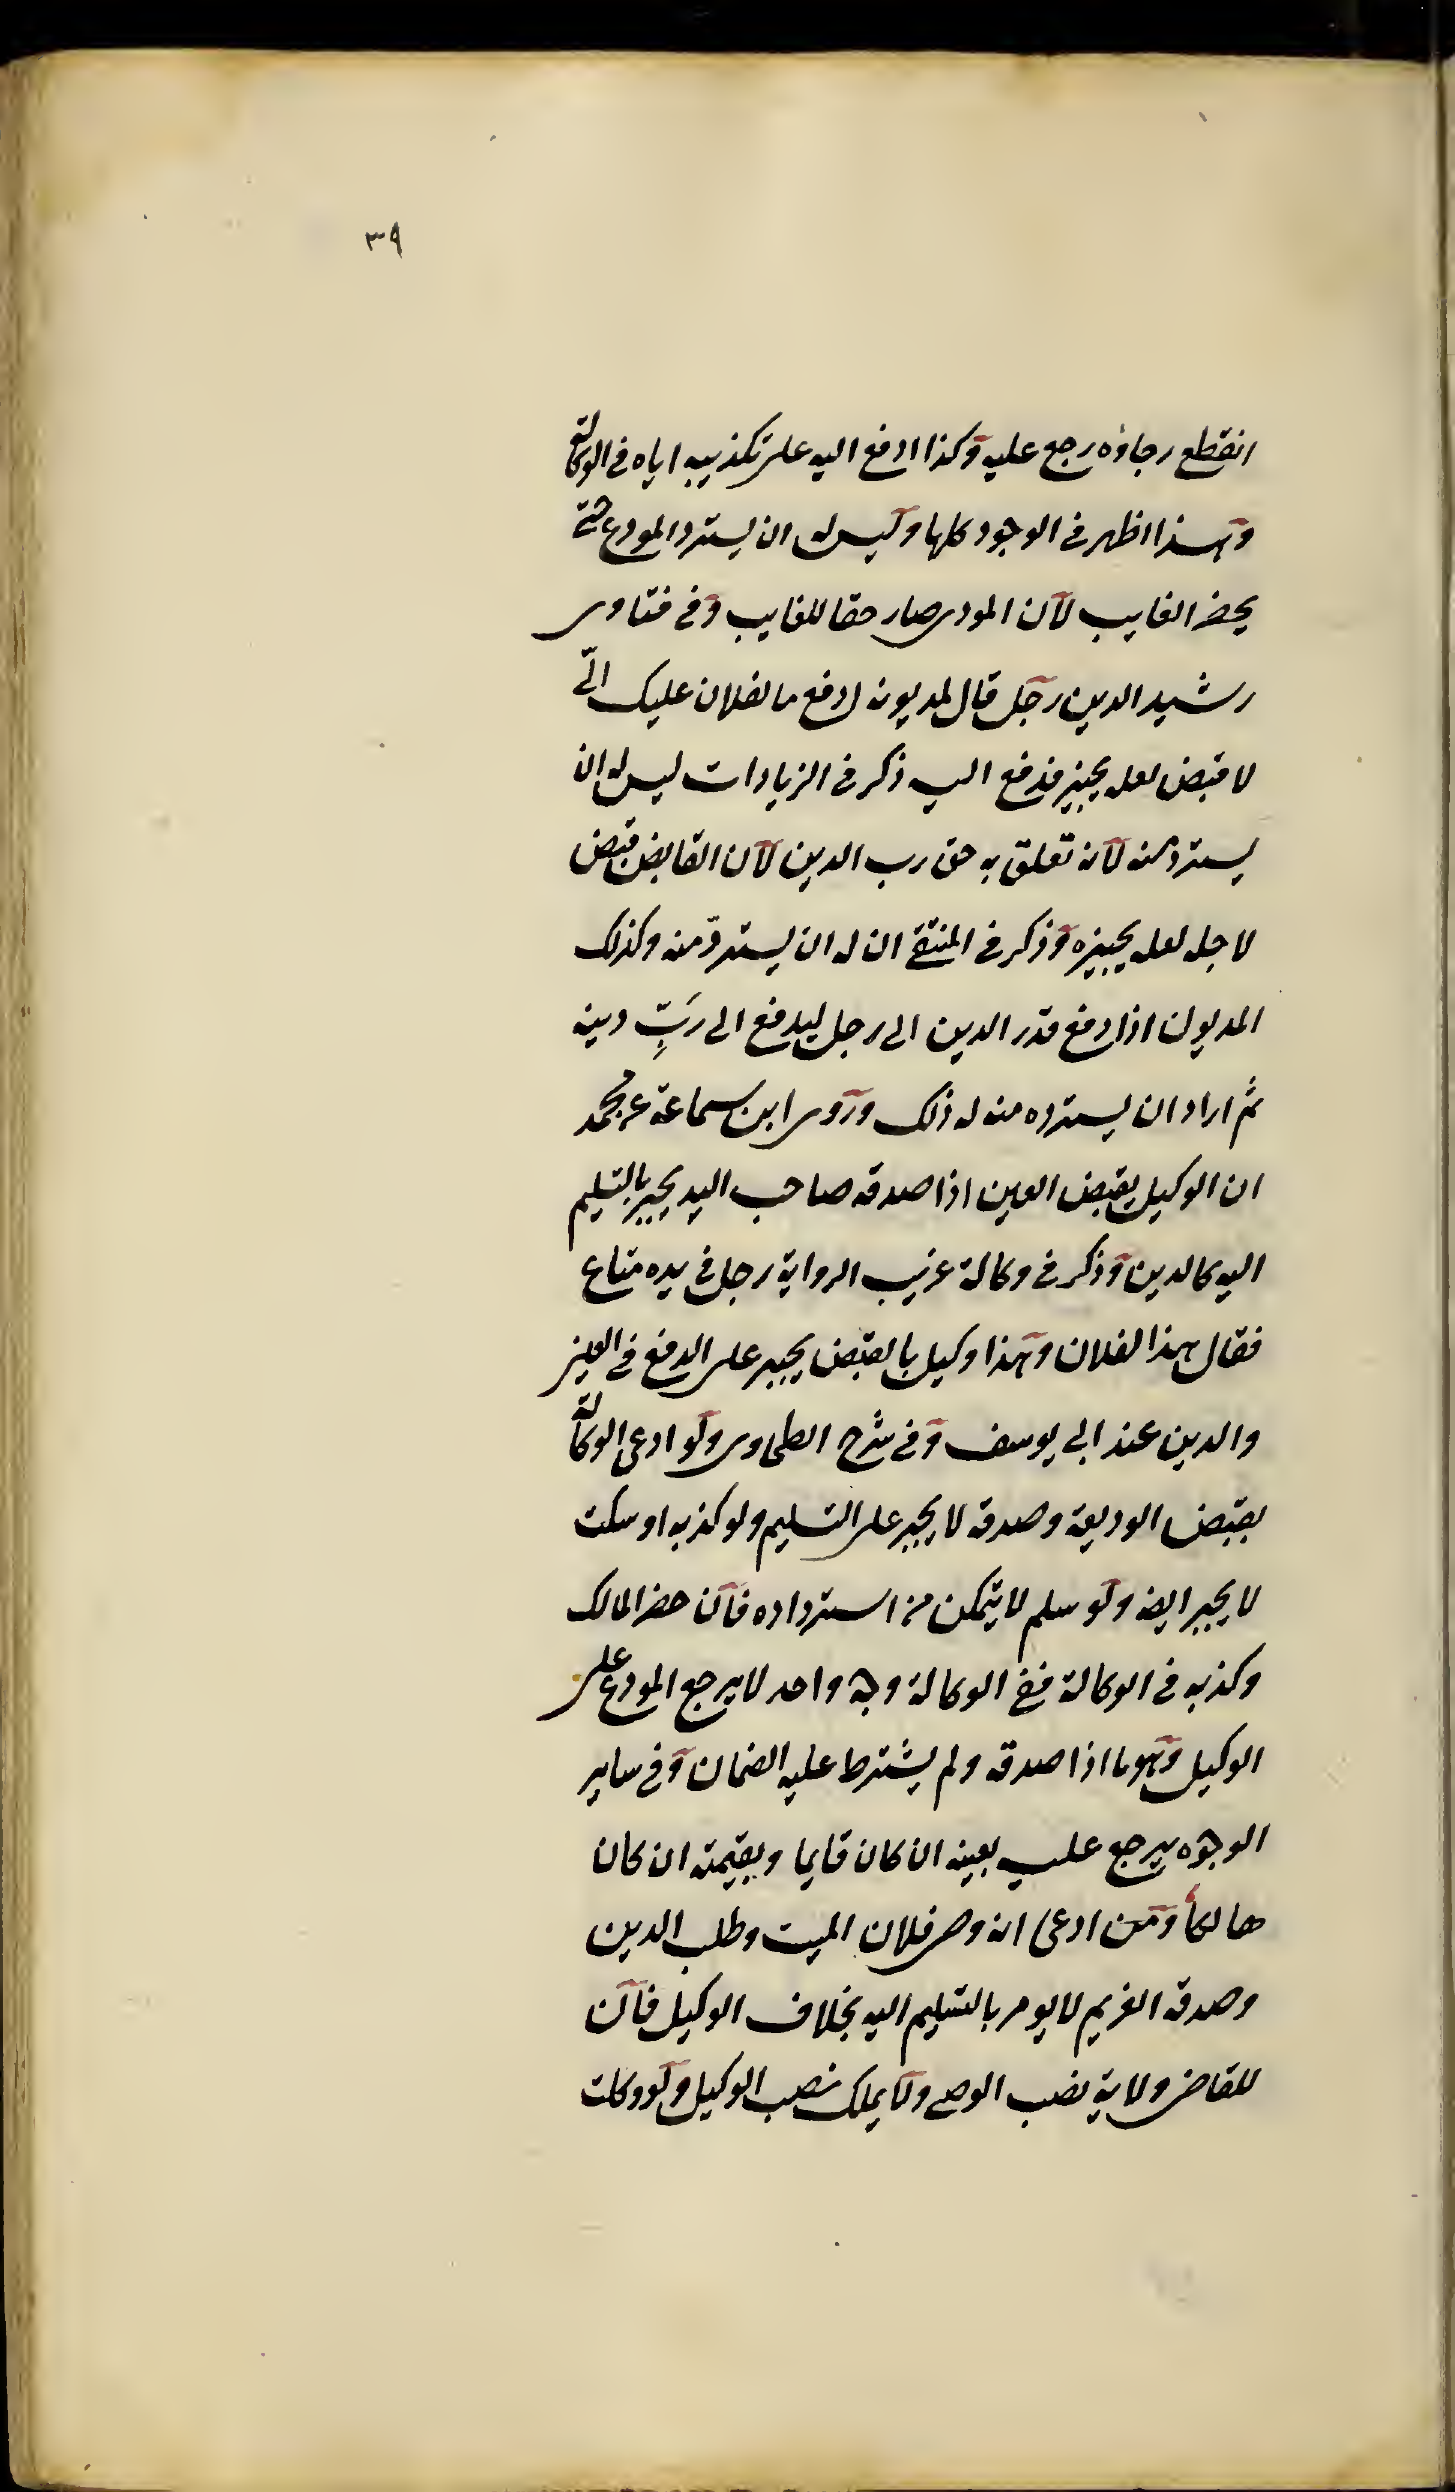 ٣٩
انقطع رجاؤه رجع عليه وكذا ادفع اليه على تكذيبه اياه في الوكالة
وهذا اظهر في الوجود كلها وليس له ان يسترد المودع حتى
يحضر الغايب لان المودى صار حقا للغايب وفي فتاوى
رشيد الدين رجل قال لمديون ادفع ما لفلان عليك الىّ
لا قبض لعله يجيز فدفع اليه ذكر في الزيادات ليس له ان
يسترد منه لانه تعلق به حق رب الدين لان القابض قبض
لاجل لعله يجيزه وذكر في المنتقى ان له ان يستردّ منه وكذلك
المديون اذا دفع قدر الدين الى رجل ليدفع الى رَبِّ دينه
ثم اراد ان يسترده منه له ذلك وروى ابن سماعة عن محمد
ان الوكيل بقبض العين اذا صدقه صاحب اليد يجبر بالتسليم
اليه كالدين وذكر في وكالة غريب الرواية رجل في يده متاع
فقال هذا لفلان وهذا وكيل بالقبض يجبر على الدفع في العين
والدين عند ابي يوسف وفي شرح الطحاوى ولو ادعى الوكالة
بقبض الوديعة وصدقه لا يجبر على التسليم ولو كذبه او سكت
لا يجبر ايضا ولو سلم لا يتمكن من استرداده فان حضر المالك
وكذبه في الوكالة ففي الوكالة وجه واحد لا يرجع المودع على
الوكيل وهو ما اذا صدقه ولم يشترط عليه الضمان وفي ساير
الوجوه يرجع عليه بعينه ان كان قايما وبقيمته ان كان
هالكا ومن ادعى انه وصى فلان الميت وطلب الدين
وصدقه الغريم لا يومر بالتسليم اليه بخلاف الوكيل فان
للقاضى ولاية نصب الوصى ولا يملك نصب الوكيل ولو وكلت